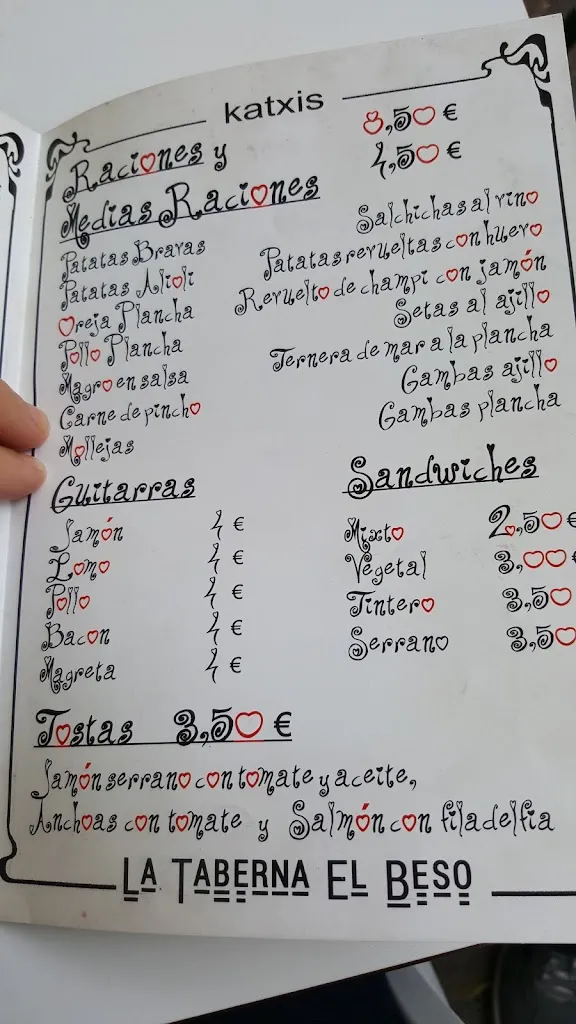 katxis
Raciones y 8,50 €
Medias Raciones 4,50 €
Patatas Bravas
Patatas Alioli
Oreja Plancha
Pollo Plancha
Magro en salsa
Carne de pincho
Mollejas
Salchichas al vino
Patatas revueltas con huevo
Revuelto de champi con jamón
Setas al ajillo
Ternera de mar a la plancha
Gambas ajillo
Gambas plancha
Guitarras
Jamón 4 €
Lomo 4 €
Pollo 4 €
Bacon 4 €
Magreta 4 €
Sandwiches
Mixto 2,50 €
Vegetal 3,00 €
Tintero 3,50
Serrano 3,50
Tostas 3,50 €
Jamón serrano con tomate y aceite,
Anchoas con tomate y Salmón con filadelfia
LA TABERNA EL BESO